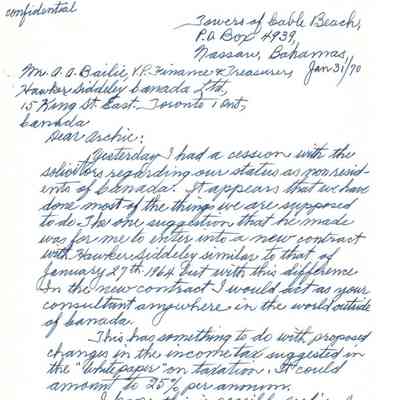 confidential
Towers of Cable Beach,
P.O. Box 4939,
Nassau, Bahamas,
Jan 31/70
Mr. A. A. Bailie, V.P. Finance & Treasurer,
Hawker Siddeley Canada Ltd,
15 King St East. Toronto 1 Ont,
Canada
Dear Archie:
Yesterday I had a cession with the
solicitors regarding our status as non resid-
ents of Canada. It appears that we have
done most of the things we are supposed
to do. The one suggestion that he made
was for me to enter into a new contract
with Hawker Siddeley similar to that of
January 27th 1964 but with this difference
In the new contract I would act as your
consultant anywhere in the world outside
of Canada.
This has something to do with proposed
changes in the income tax suggested in
the "White paper" on taxation. It could
amount to 25% per annum.